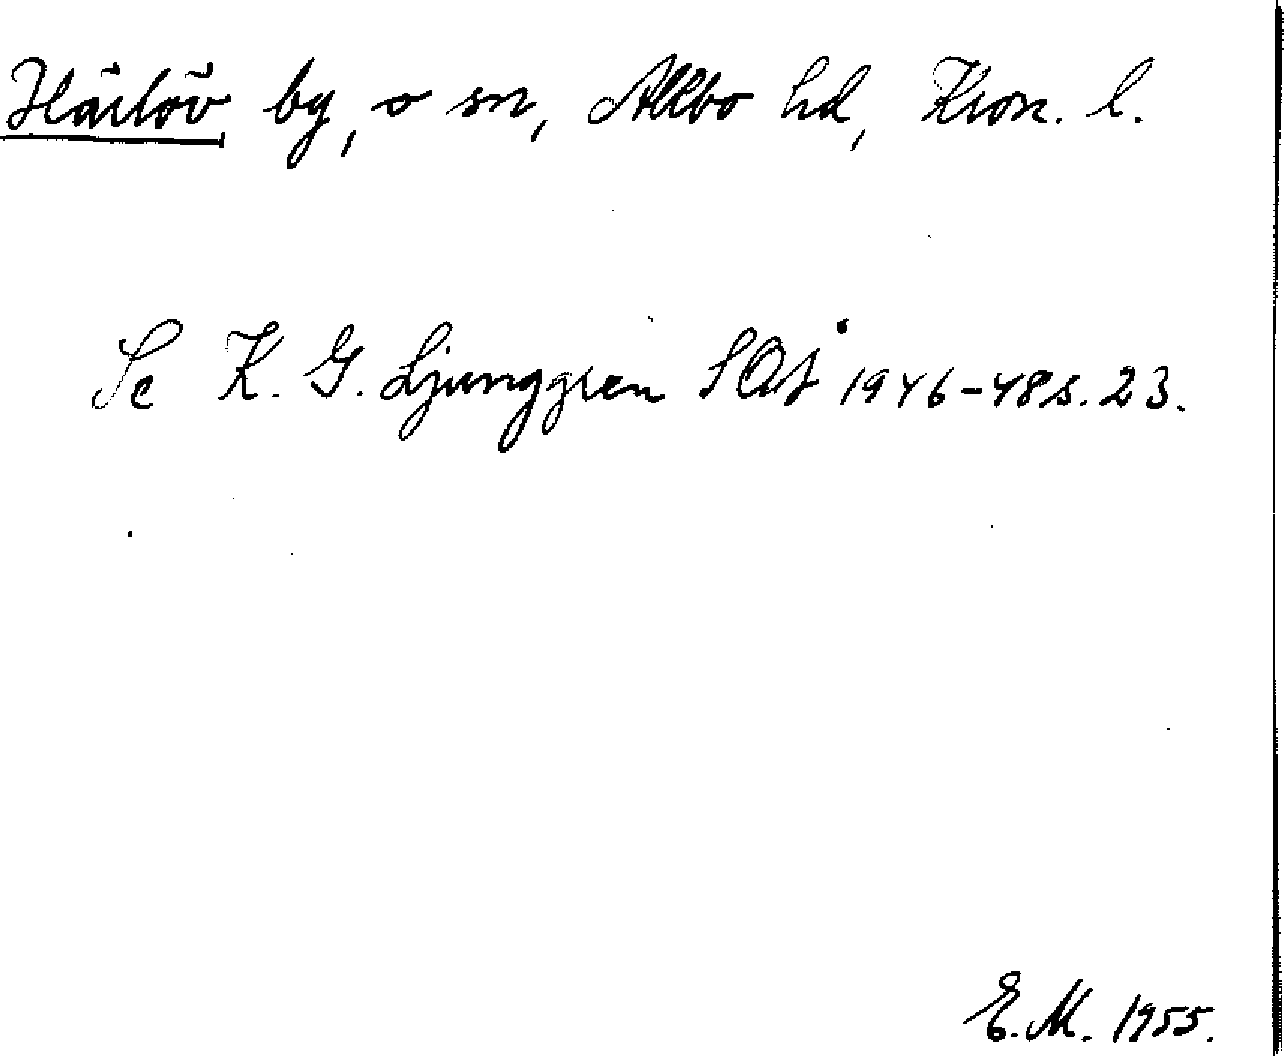 Härlöv by, o sn, Allbo hd, Kron. l.
Se K. G. Ljunggren SOÅ 1946-48 s. 23.
E. M. 1955.